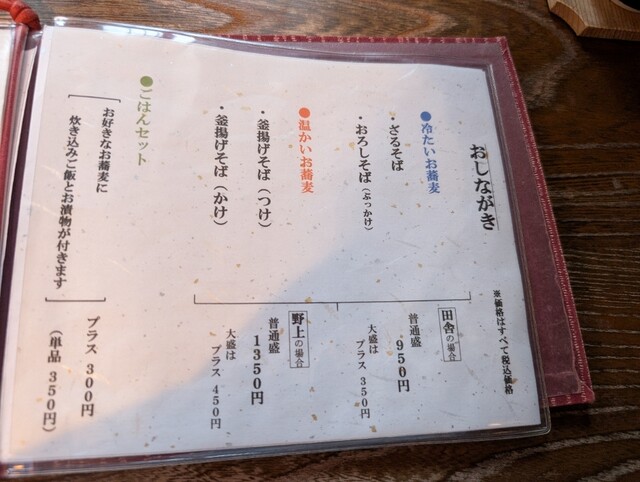 おしながき
※価格はすべて税込価格
●冷たいお蕎麦
・ざるそば
・おろしそば(ぶっかけ)
●温かいお蕎麦
・釜揚げそば(つけ)
・釜揚げそば(かけ)
田舎の場合
普通盛 950円
大盛は プラス 350円
野上の場合
普通盛 1350円
大盛は プラス 450円
●ごはんセット
お好きなお蕎麦に
炊き込みご飯とお漬物が付きます
プラス 300円
(単品 350円)